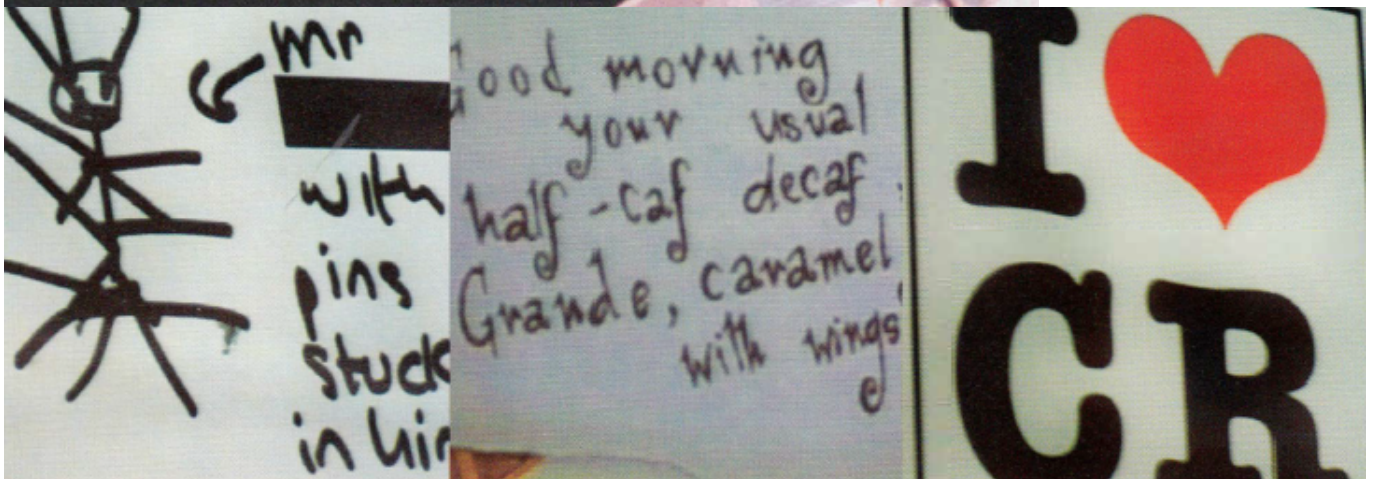 mr
with
pins
stuck
in him
Good morning
your usual
half-caf decaf
Grande, caramel
with wings
I
CR